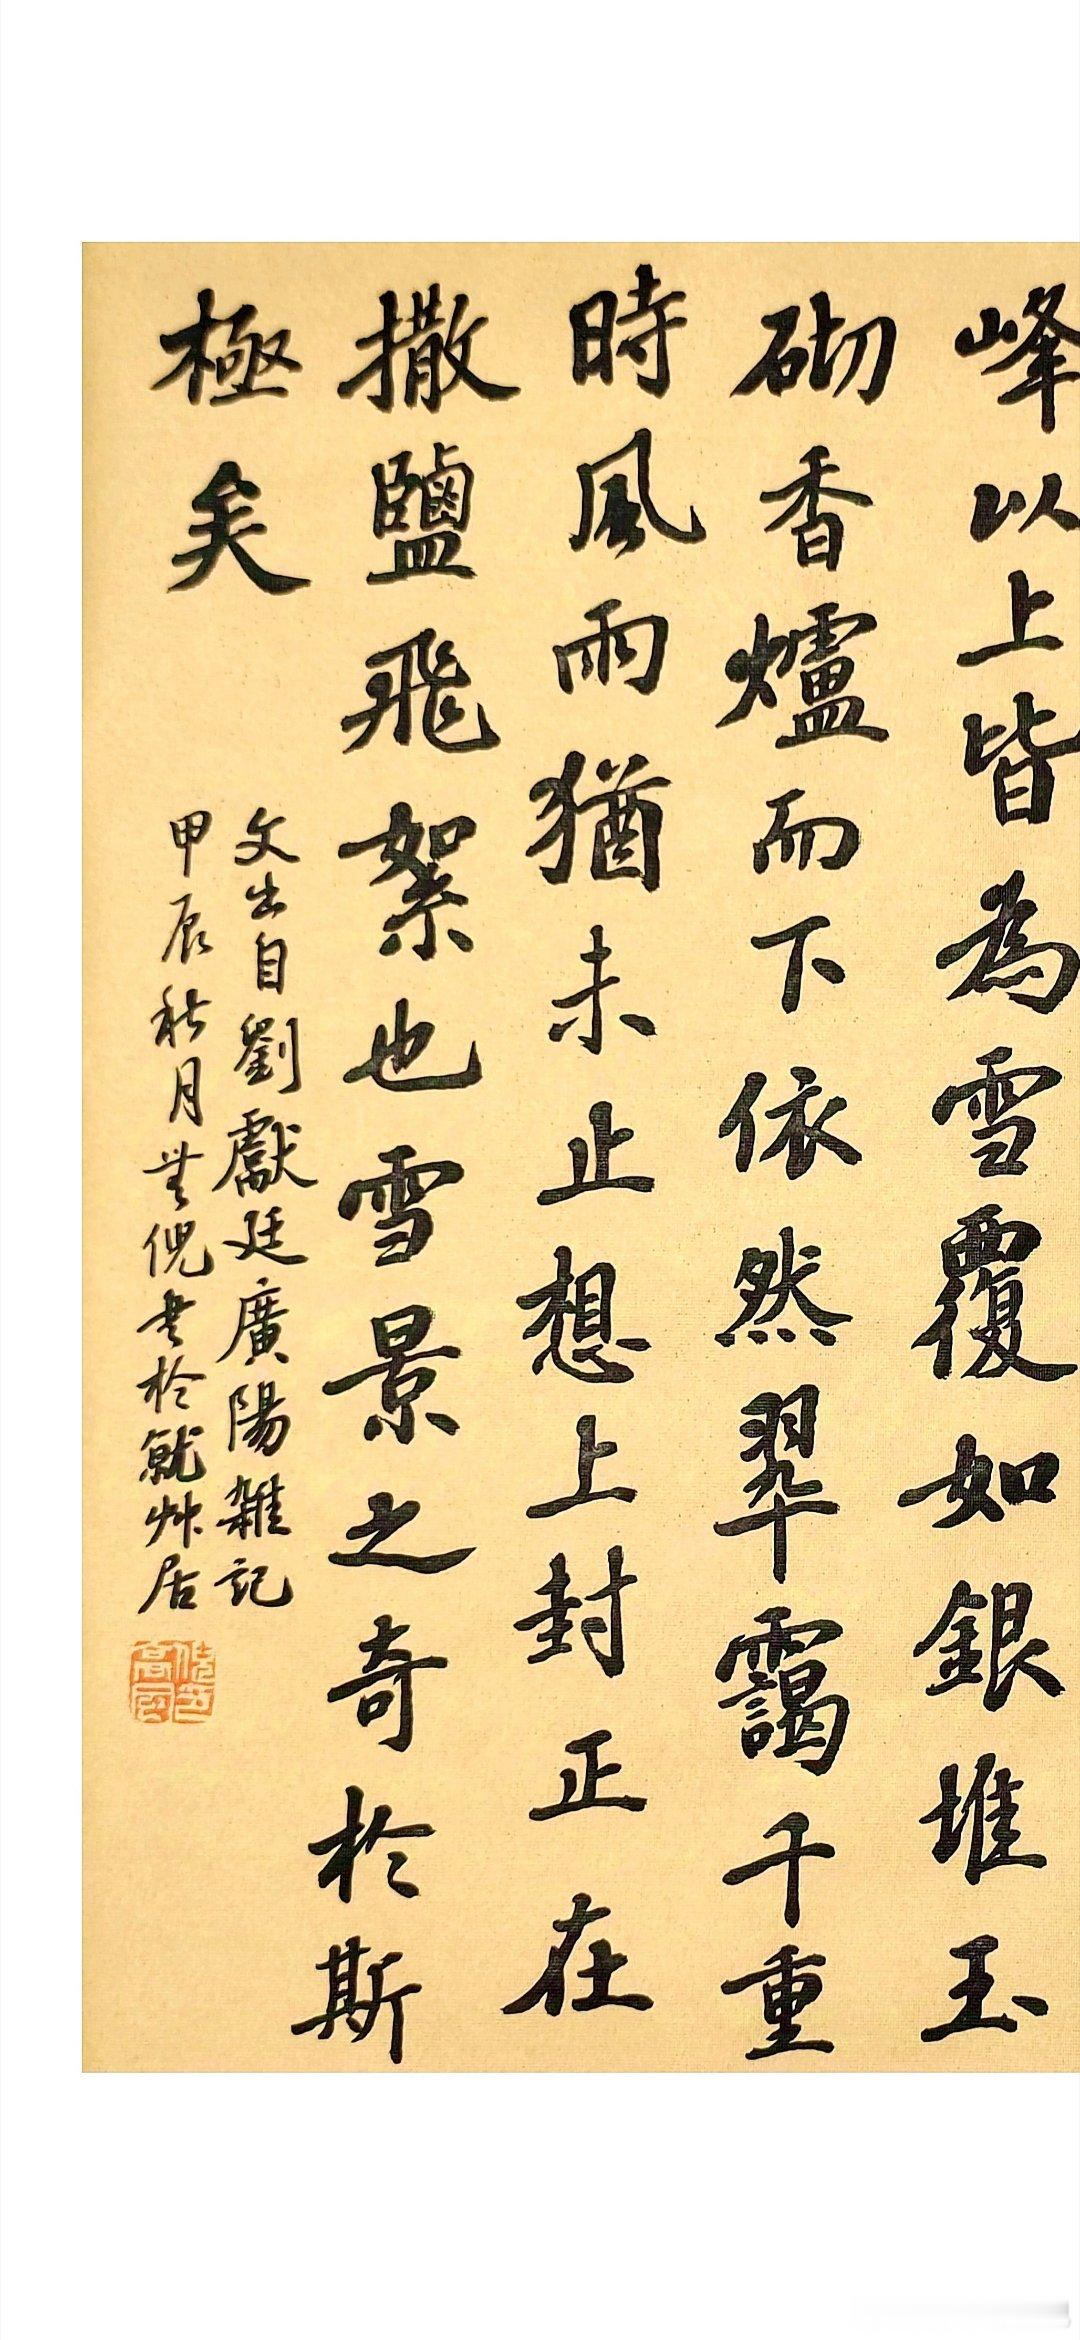 峰以上皆為雪覆如銀堆玉
砌香爐而下依然翠靄千重
時風雨猶未止想上封正在
撒鹽飛絮也雪景之奇於斯
極矣
文出自劉獻廷廣陽雜記
甲辰秋月無倪書於就艸居